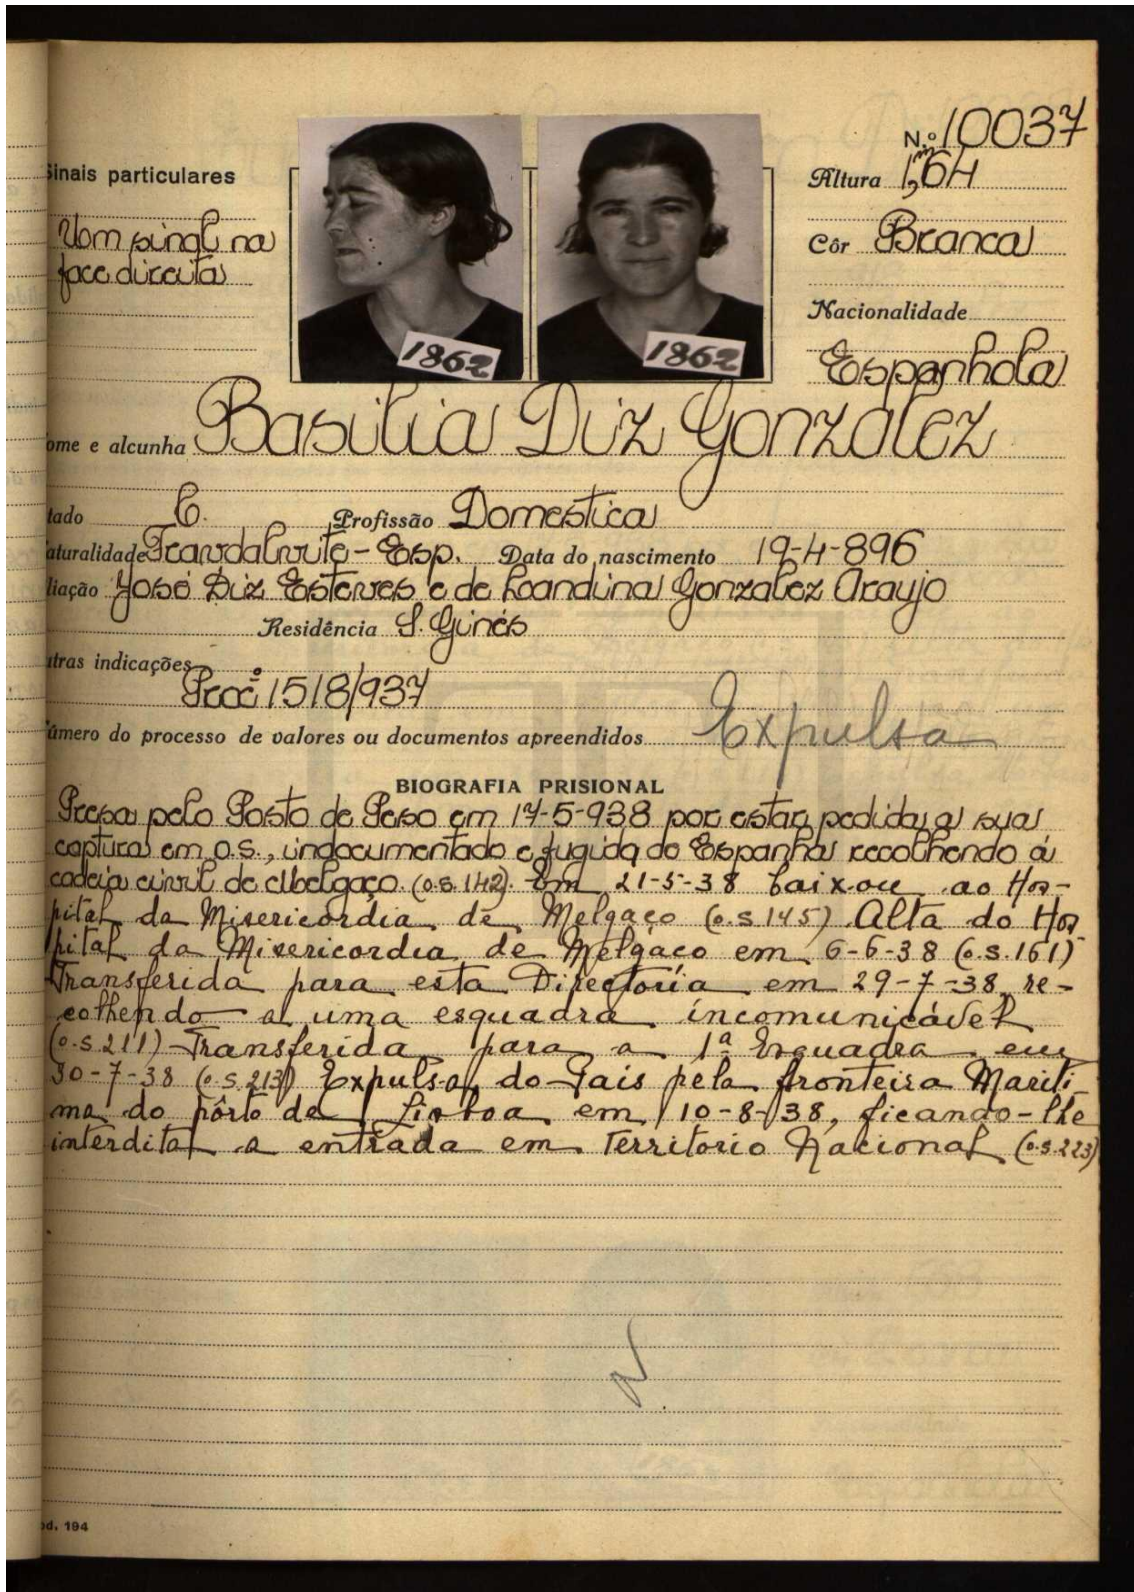 N.º 10037
Sinais particulares
Altura 1,m64
Um sinal na
face direita
Côr Branca
Nacionalidade
Espanhola
1862
1862
ome e alcunha Basilia Diz Gonzalez
tado C. Profissão Domestica
aturalidade - Esp. Data do nascimento 19-4-896
liação José Diz Esteves e de Leandrina Gonzalez Araujo
Residência S. Ginés
utras indicações
Procº 1518/937
úmero do processo de valores ou documentos apreendidos Expulsa
BIOGRAFIA PRISIONAL
Presa pelo Posto de Peso em 17-5-938 por estar pedida a sua
captura em o.s., indocumentado e fugida de Espanha recolhendo á
cadeia civil de Melgaço. (o.s. 142). Em 21-5-38 baixou ao Hos-
pital da Misericordia de Melgaço (o.s 145) Alta do Hos-
pital da Misericordia de Melgaço em 6-6-38 (o.s. 161)
Transferida para esta Directoria em 29-7-38, re-
colhendo a uma esquadra incomunicável
(o.s 211) Transferida para a 1ª Esquadra em
30-7-38 (o.s. 213) Expulsa do País pela fronteira Mariti-
ma do pôrto de Lisboa em 10-8-38, ficando-lhe
interdita a entrada em Territorio Nacional (o.s. 223)
od. 194